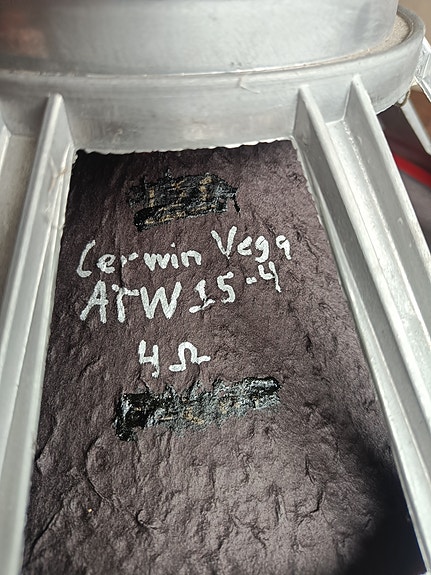 Cerwin Vega
ATW 15-4
4Ω